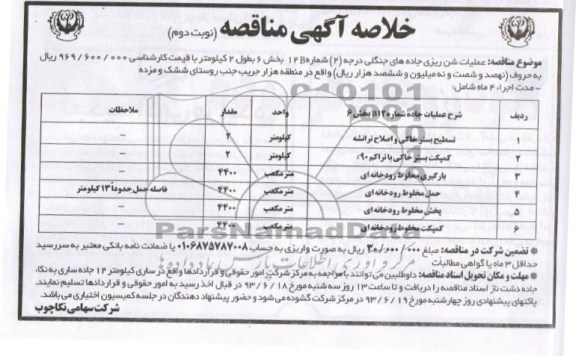 خلاصه آگهی مناقصه (نوبت دوم)
موضوع مناقصه: عملیات شن ریزی جاده های جنگلی درجه (۲) شماره۱۲B بخش ۶ بطول ۲ کیلومتر با قیمت کارشناسی ۹۶۹/۶۰۰/۰۰۰ ریال
به حروف (نهصد و شصت و نه میلیون و ششصد هزار ریال) واقع در منطقه هزار جریب جنب روستای ششک و مزده
- مدت اجراء ۴ ماه شامل:
ردیف شرح عملیات جاده شماره B۱۲ بخش ۶ واحد مقدار ملاحظات
۱ تسطیح بستر خاکی و اصلاح ترانشه کیلومتر ۲ --
۲ کمپکت بستر خاکی با تراکم ۹۰٪ کیلومتر ۲ --
۳ بارگیری مخلوط رودخانه ای مترمکعب ۴۴۰۰ --
۴ حمل مخلوط رودخانه ای مترمکعب ۴۴۰۰ فاصله حمل حدوداً ۱۳ کیلومتر
۵ پخش مخلوط رودخانه ای مترمکعب ۴۴۰۰ --
۶ کمپکت مخلوط رودخانه ای مترمکعب ۴۴۰۰ --
* تضمین شرکت در مناقصه: مبلغ ۳۰/۰۰۰/۰۰۰ ریال به صورت واریزی به حساب ۰۱۰۶۸۷۵۷۸۷۰۰۸ یا ضمانت نامه بانکی معتبر به سررسید
حداقل ۳ ماه یا گواهی مطالبات
* مهلت و مکان تحویل اسناد مناقصه: داوطلبین می توانند با مراجعه به مرکز شرکت امور حقوقی و قراردادها واقع در ساری کیلومتر ۱۲ جاده ساری به نکا،
جاده دشت ناز اسناد مناقصه را دریافت و تا ساعت ۱۳ روز سه شنبه مورخ ۹۳/۶/۱۸ در قبال اخذ رسید به امور حقوقی و قراردادها تسلیم نمایند.
پاکتهای پیشنهادی روز چهارشنبه مورخ ۹۳/۶/۱۹ در مرکز شرکت گشوده می شود و حضور پیشنهاد دهندگان در جلسه کمیسیون اختیاری می باشد.
شرکت سهامی نکاچوب
ParsNamadData